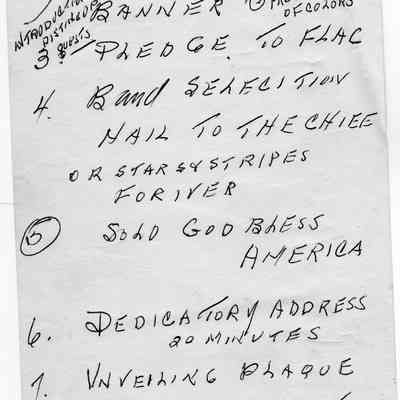 BANNER
OF COLORS
INTRODUCTION
DISTING
GUESTS
3 PLEDGE TO FLAG
4. Band SELECTION
HAIL TO THE CHIEF
OR STARS & STRIPES
FORIVER
5 SOLO GOD BLESS
AMERICA
6. DEDICATORY ADDRESS
20 MINUTES
7. UNVEILING PLAQUE